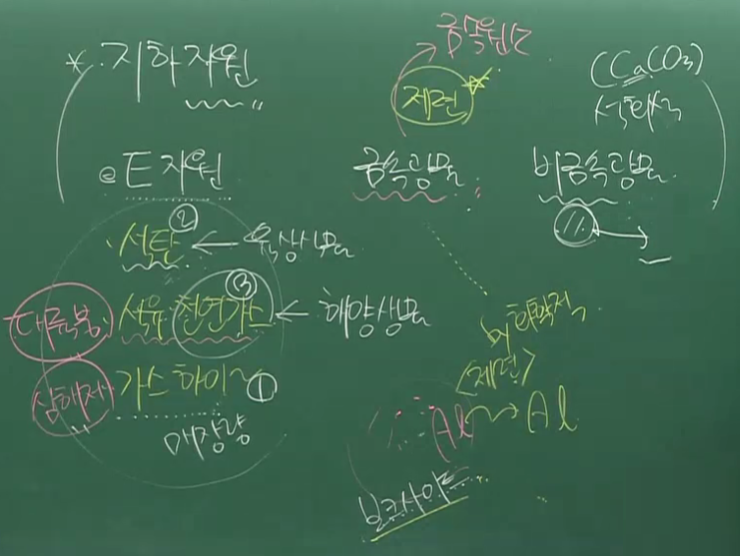 * 지하자원
금속원소
제련
(CaCO₃)
석회석
@ E 자원
금속광물
비금속광물
②
석탄 ← 육상식물
③
대륙붕 석유 천연가스 ← 해양생물
심해저 가스하이~ ①
매장량
by 화학적
<제련>
Al ~→ Al
보크사이트